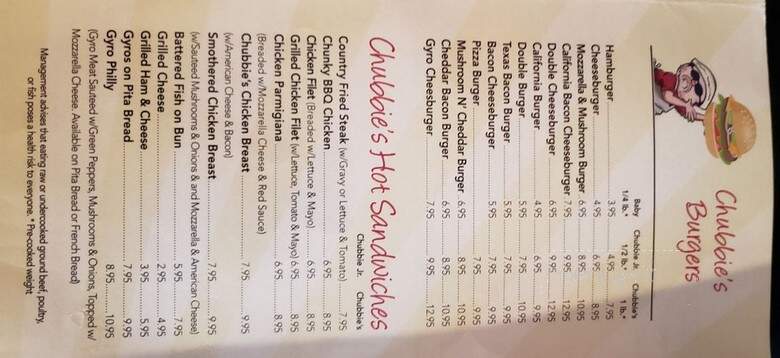 Chubbie's
Burgers
Baby Chubbie Jr. Chubbie's
1/4 lb.* 1/2 lb.* 1 lb.*
Hamburger 3.95 4.95 7.95
Cheeseburger 4.95 6.95 8.95
Mozzarella & Mushroom Burger 6.95 8.95 10.95
California Bacon Cheeseburger 7.95 9.95 12.95
Double Cheeseburger 6.95 9.95 12.95
California Burger 4.95 6.95 9.95
Double Burger 5.95 7.95 10.95
Texas Bacon Burger 5.95 7.95 9.95
Bacon Cheeseburger 5.95 7.95 9.95
Pizza Burger 7.95 9.95
Mushroom N' Cheddar Burger 6.95 8.95 10.95
Cheddar Bacon Burger 6.95 8.95 10.95
Gyro Cheesburger 7.95 9.95 12.95
Chubbie's Hot Sandwiches
Chubbie Jr. Chubbie's
Country Fried Steak (w/Gravy or Lettuce & Tomato) 7.95
Chunky BBQ Chicken 6.95 8.95
Chicken Filet (Breaded w/Lettuce & Mayo) 6.95 8.95
Grilled Chicken Filet (w/Lettuce, Tomato & Mayo) 6.95 8.95
Chicken Parmigiana 6.95 8.95
(Breaded w/Mozzarella Cheese & Red Sauce)
Chubbie's Chicken Breast 7.95 9.95
(w/American Cheese & Bacon)
Smothered Chicken Breast 7.95 9.95
(w/Sauteed Mushrooms & Onions & and Mozzarella & American Cheese)
Battered Fish on Bun 5.95 7.95
Grilled Cheese 2.95 4.95
Grilled Ham & Cheese 3.95 5.95
Gyros on Pita Bread 7.95 9.95
Gyro Philly 8.95 10.95
(Gyro Meat Sauteed w/Green Peppers, Mushrooms & Onions, Topped w/
Mozzarella Cheese. Available on Pita Bread or French Bread)
Management advises that eating raw or undercooked ground beef, poultry,
or fish poses a health risk to everyone. * Pre-cooked weight